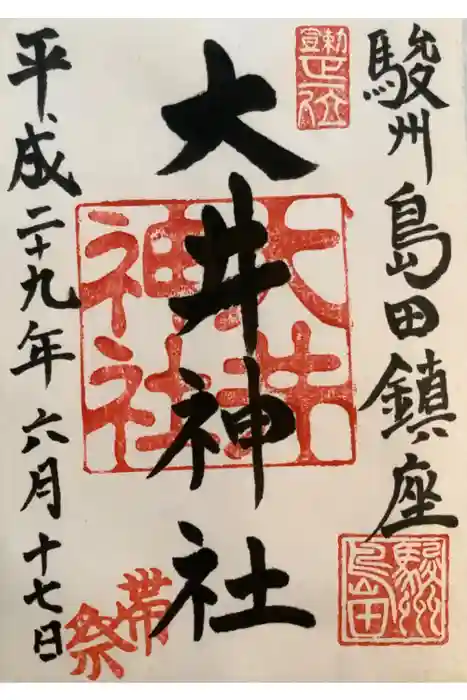 駿州島田鎮座
勅宣
正位
大井神社
大井
神社
駿州
島田
帯祭
平成二十九年六月十七日